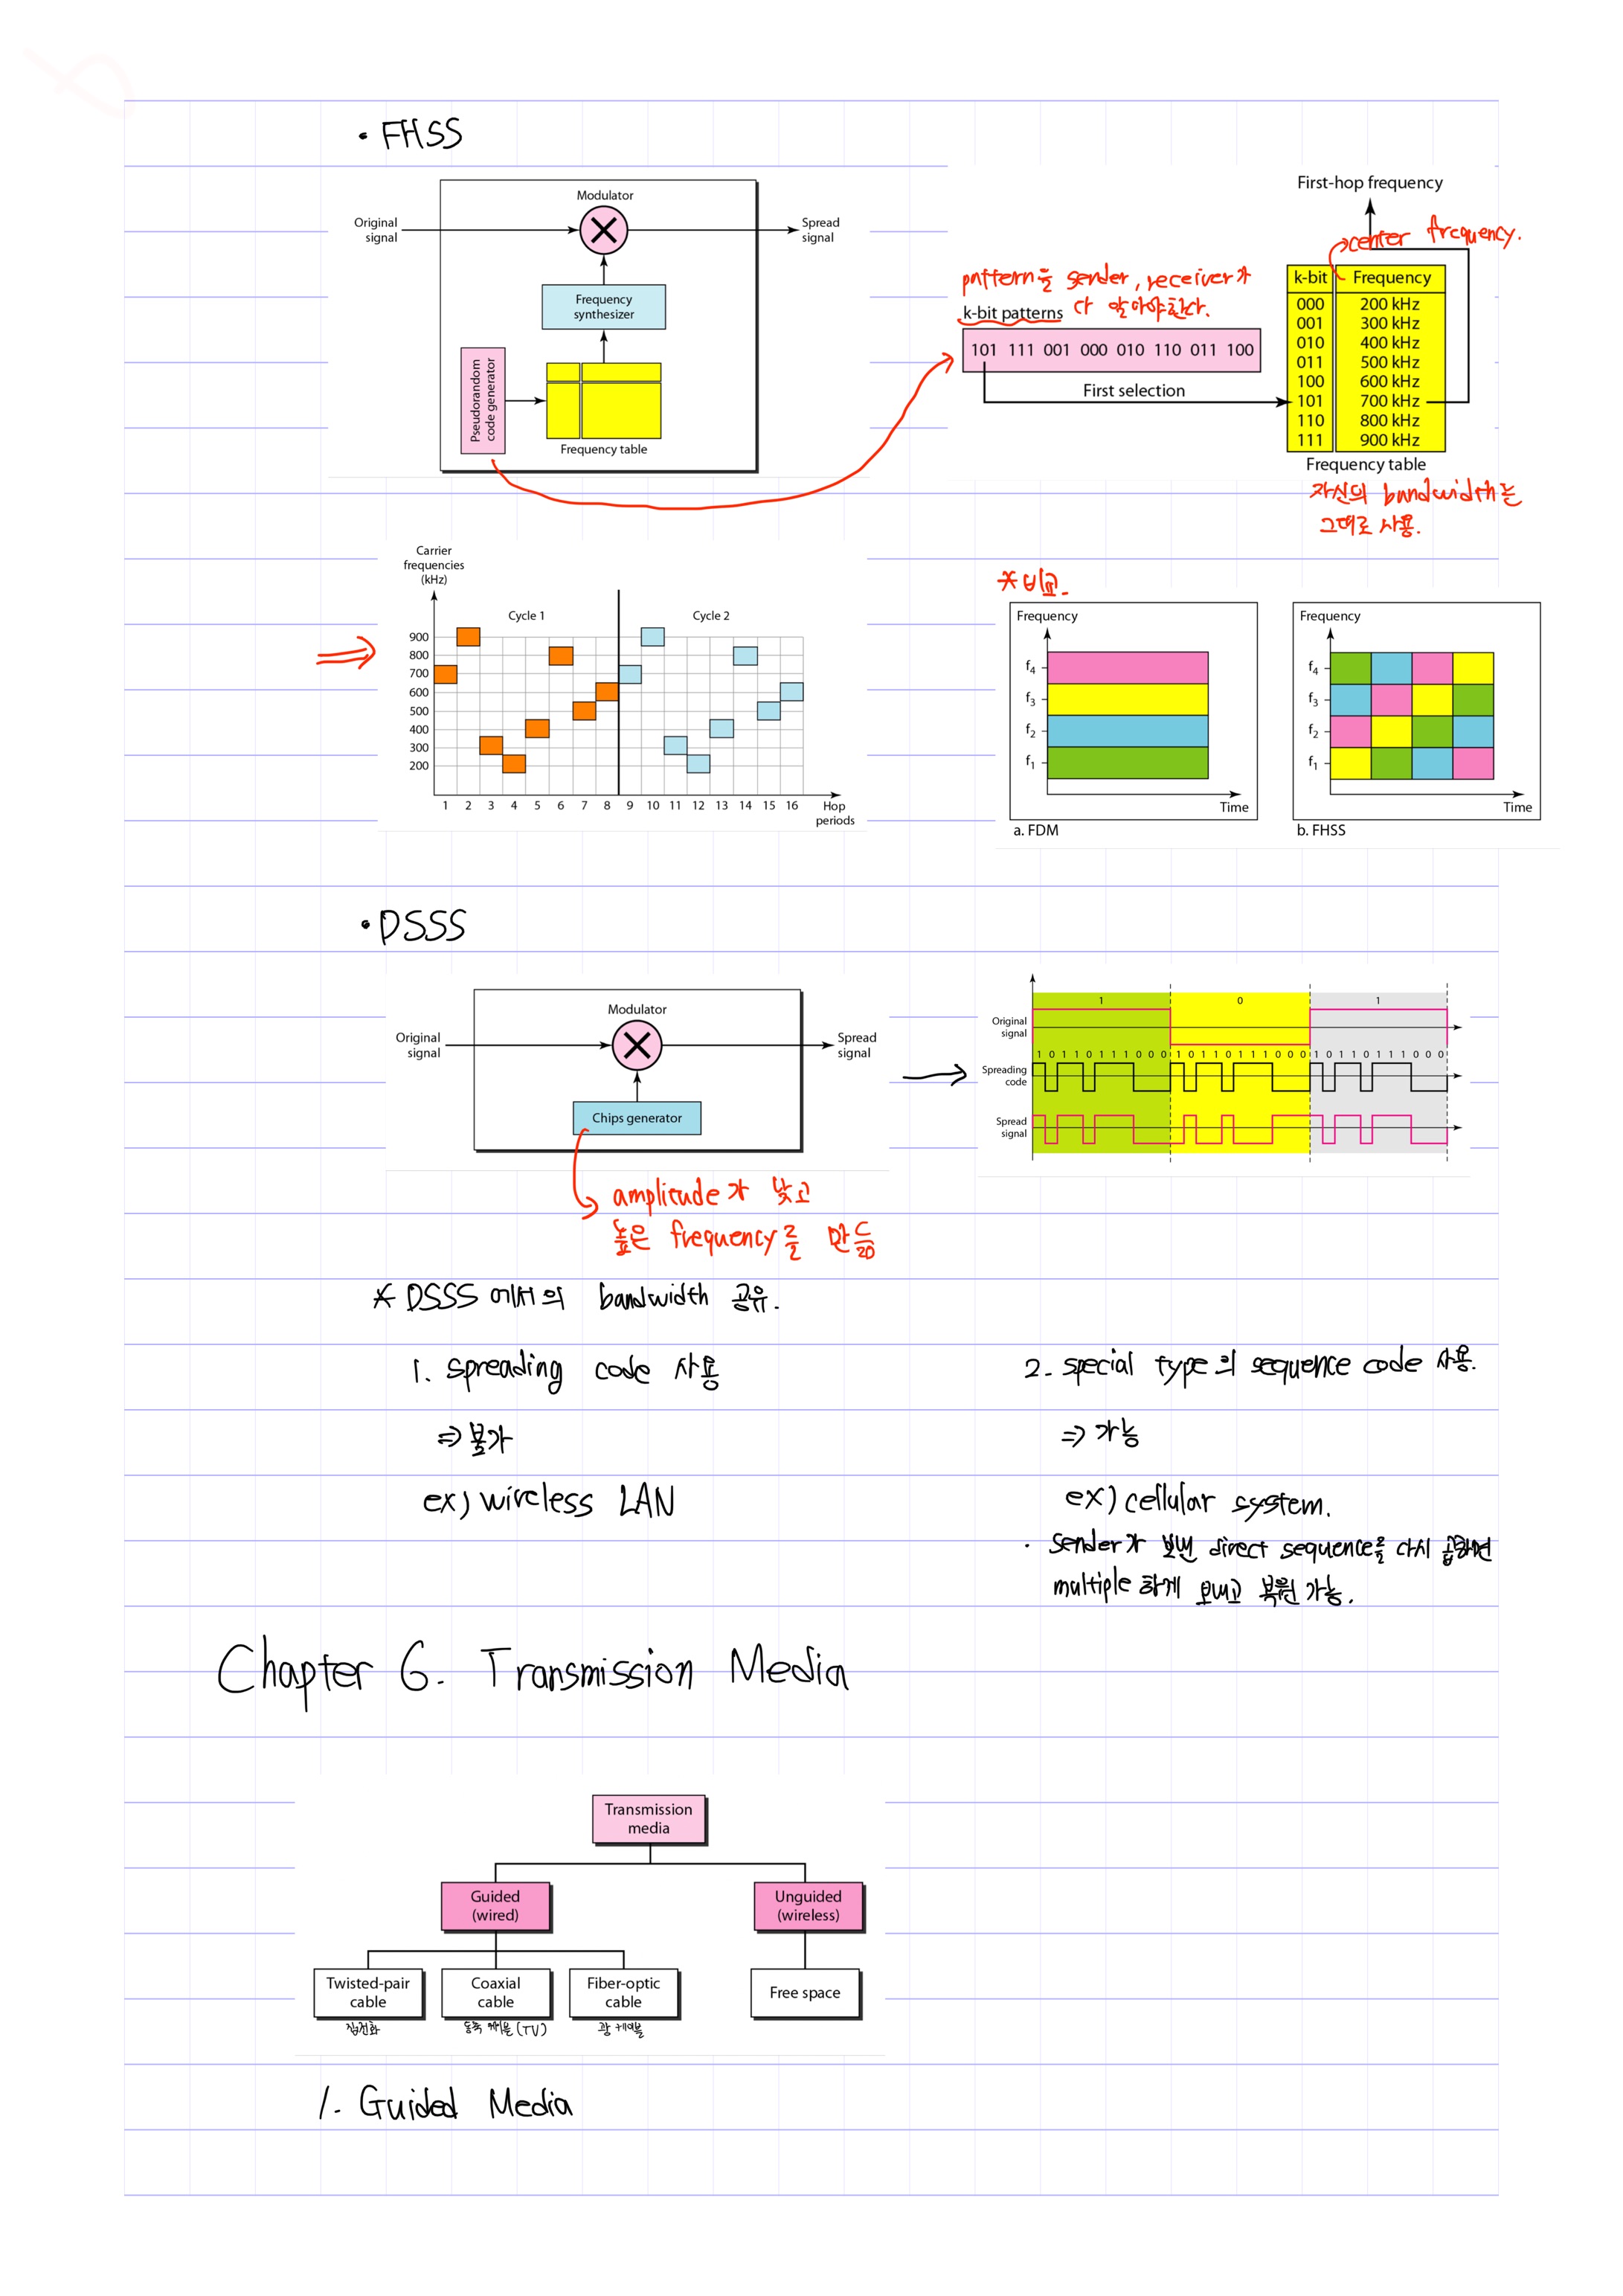 • FHSS
Modulator
Original
signal
Spread
signal
Frequency
synthesizer
Pseudorandom
code generator
Frequency table
First-hop frequency
center frequency.
pattern을 sender, receiver가
다 알아야한다.
k-bit patterns
101 111 001 000 010 110 011 100
First selection
k-bit Frequency
000 200 kHz
001 300 kHz
010 400 kHz
011 500 kHz
100 600 kHz
101 700 kHz
110 800 kHz
111 900 kHz
Frequency table
자신의 bandwidth는
그대로 사용.
Carrier
frequencies
(kHz)
Cycle 1 Cycle 2
900
800
700
600
500
400
300
200
1 2 3 4 5 6 7 8 9 10 11 12 13 14 15 16
Hop
periods
* 비교.
Frequency
f4
f3
f2
f1
Time
a. FDM
Frequency
f4
f3
f2
f1
Time
b. FHSS
• DSSS
Modulator
Original
signal
Spread
signal
Chips generator
amplitude가 낮고
높은 frequency를 만듦
1 0 1
Original
signal
1 0 1 1 0 1 1 1 0 0 0 1 0 1 1 0 1 1 1 0 0 0 1 0 1 1 0 1 1 1 0 0 0
Spreading
code
Spread
signal
* DSSS 에서의 bandwidth 공유.
1. spreading code 사용
⇒ 불가
ex) wireless LAN
2. special type의 sequence code 사용.
⇒ 가능
ex) cellular system.
• sender가 보낸 direct sequence를 다시 곱하면
multiple 하게 보내고 복원 가능.
Chapter 6. Transmission Media
Transmission
media
Guided
(wired)
Unguided
(wireless)
Twisted-pair
cable
Coaxial
cable
Fiber-optic
cable
Free space
집전화
동축 케이블 (TV)
광 케이블
1. Guided Media